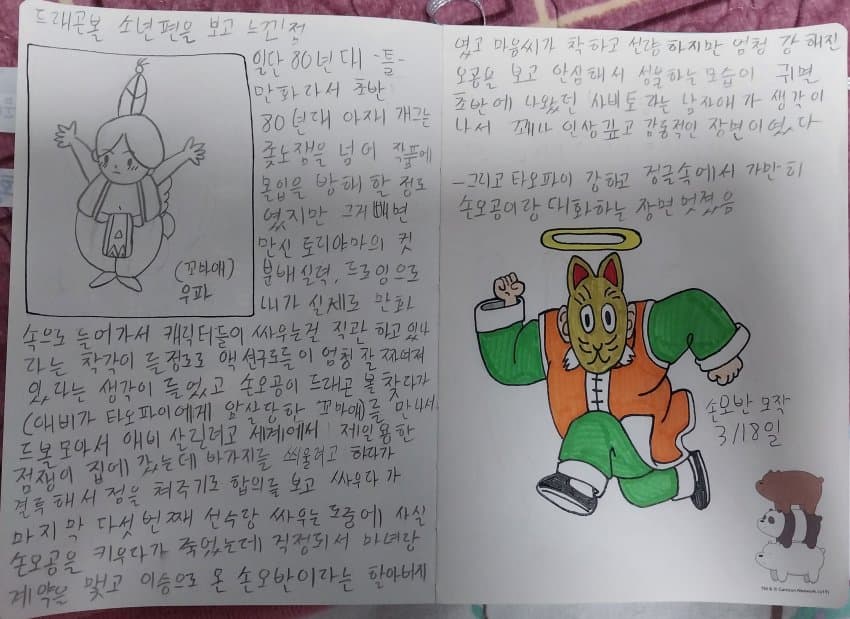 드래곤볼 소년편을 보고 느낀점
일단 80년대 -틀-
만화라서 초반
80년대 아재 개그는
좆노잼을 넘어 작품에
몰입을 방해 할 정도
였지만 그거 빼면
만신 토리야마의 컷
분배실력, 드로잉으로
내가 실제로 만화
속으로 들어가서 캐릭터들이 싸우는걸 직관 하고있나
라는 착각이 들 정도로 액션구도들이 엄청 잘 짜여져
있다는 생각이 들었고 손오공이 드래곤 볼 찾다가
(애비가 타오파이에게 암살당한 꼬마애)를 만나서
드볼모아서 애비 살릴려고 세계에서 제일 용한
점쟁이 집에 갔는데 바가지를 씌울려고 하다가
결투해서 점을 쳐주기로 합의를 보고 싸우다가
마지막 다섯번째 선수랑 싸우는 도중에 사실
손오공을 키우다가 죽었는데 걱정되서 마녀랑
계약을 맺고 이승으로 온 손오반이라는 할아버지
(꼬마애)
우파
였고 마음씨가 착하고 선량하지만 엄청 강해진
오공을 보고 안심해서 성불하는 모습이 귀멸
초반에 나왔던 사비토라는 남자애가 생각이
나서 꽤나 인상깊고 감동적인 장면이였다
-그리고 타오파이 강하고 정글속에서 가만히
손오공이랑 대화하는 장면 멋졌음
손오반 모작
3/18일
TM & © Cartoon Network.